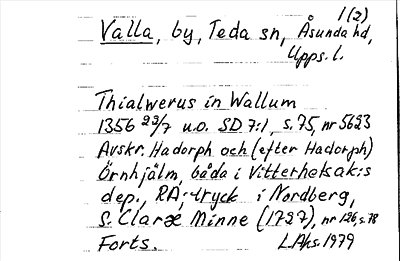 1(2)
Valla, by, Teda sn, Åsunda hd,
Upps. l.
Thialwerus in Wallum
1356 23/7 u.o. SD 7:1, s. 75, nr 5623
Avskr. Hadorph och (efter Hadorph)
Örnhjälm, båda i Vitterhetsak:s
dep., RA; tryck i Nordberg,
S. Claræ Minne (1727), nr 126, s. 78
Forts. L. Ahs. 1979